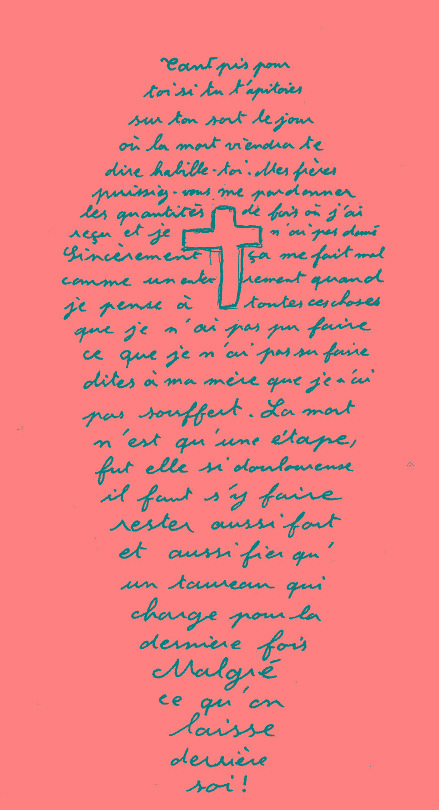 Tant pis pour
toi si tu t'apitoies
sur ton sort le jour
où la mort viendra te
dire habille-toi. Mes frères
puissiez-vous me pardonner
les quantités de fois où j'ai
reçu et je n'ai pas donné
Sincèrement ça me fait mal
comme un enterrement quand
je pense à toutes ces choses
que je n'ai pas pu faire
ce que je n'ai pas su faire
dites à ma mère que je n'ai
pas souffert. La mort
n'est qu'une étape,
fut elle si douloureuse
il faut s'y faire
rester aussi fort
et aussi fier qu'
un taureau qui
charge pour la
dernière fois
Malgré
ce qu'on
laisse
derrière
soi!